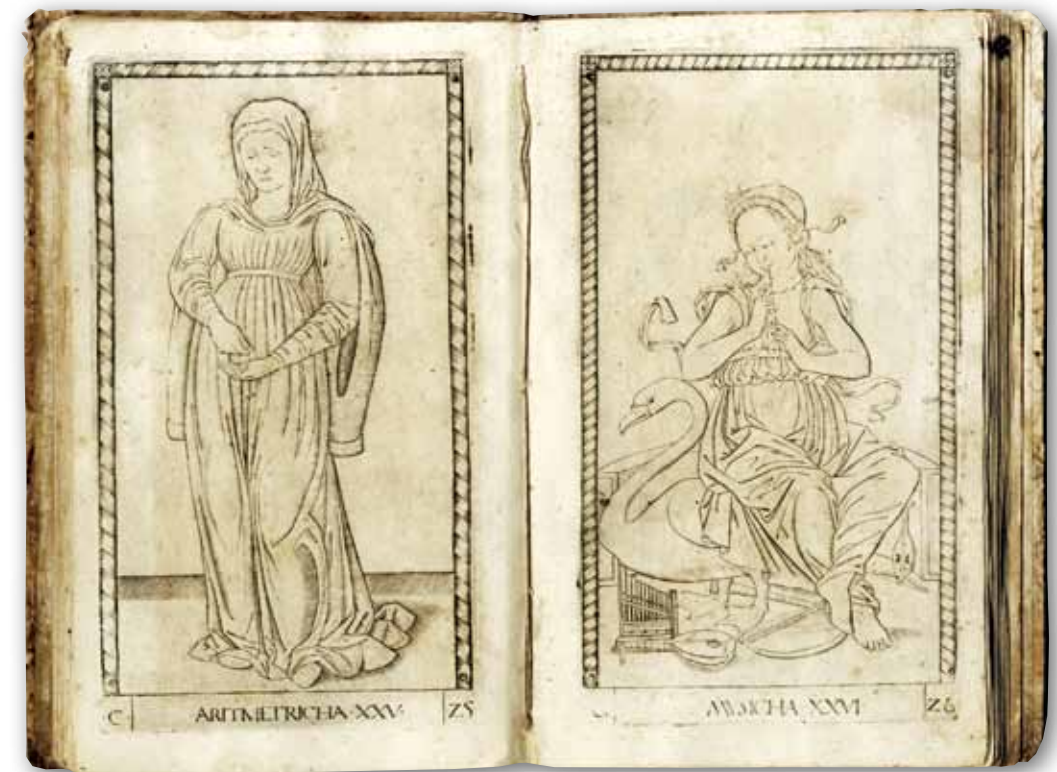 C ARITMETRICHA·XXV· 25
MUSICHA XXVI 26